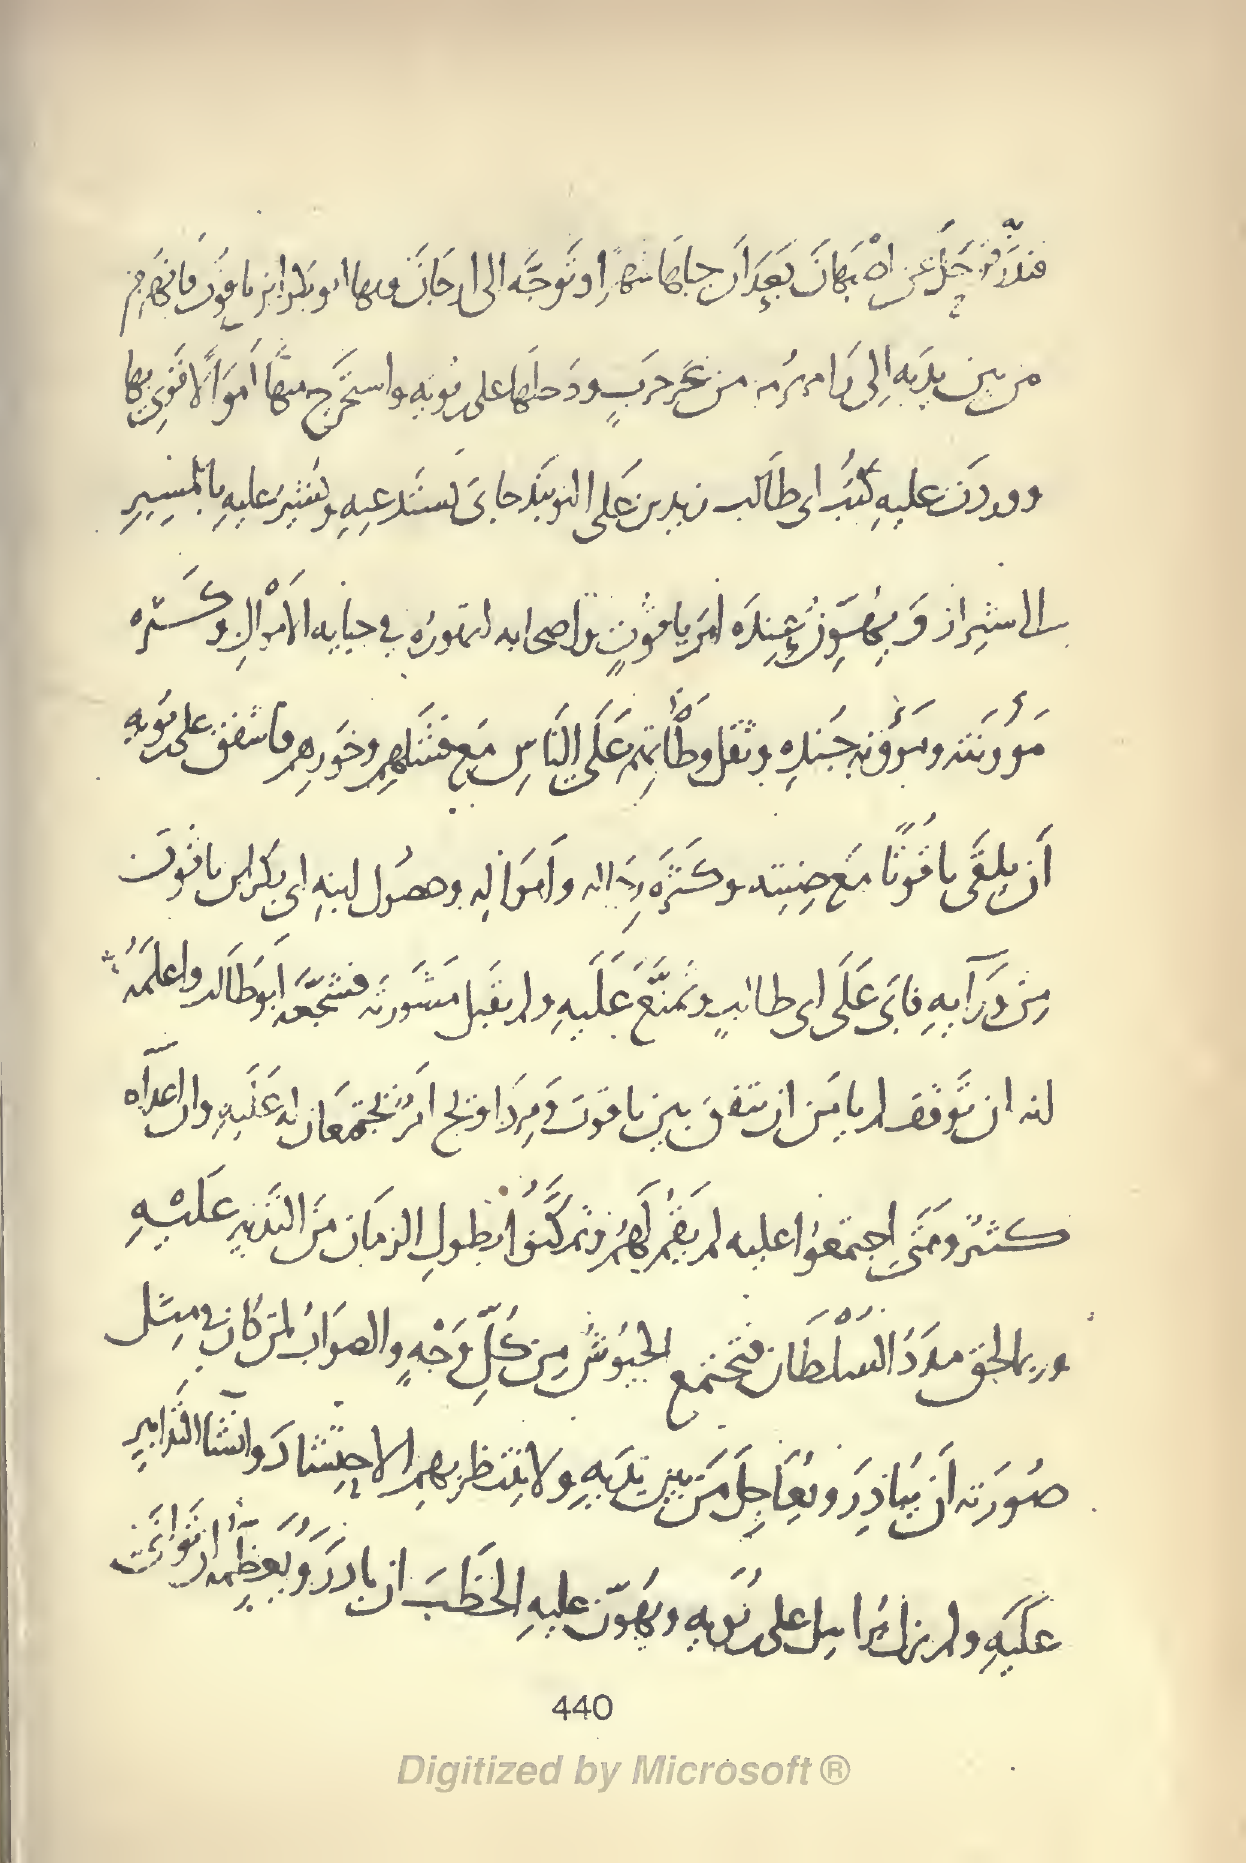 فلا فرحل عن اصبهان بعد ان جباها شهرا وتوجه الى ارجان وبها ابو بكر ابن ياقوت فانهزم
من بين يديه الى رامهرمز من غير حرب ودخلها على بن بويه واستخرج منها اموالا فقوى بها
ووردت عليه كتب ابى طالب زيد بن على النوبندجانى يستدعيه ويشير عليه بالمسير
الى شيراز ويهون عنده امر ياقوت واصحابه لتهوره فى جباية الاموال وكثرة
مؤونته ومؤونة جنده وثقل وطأتهم على الناس مع فشلهم وخورهم فاشفق على بن بويه
ان يلقى ياقوتا مع صيته وكثرة رجاله وامواله وحصول ابنه ابى بكر ابن ياقوت
من ورآيه فابى على ابى طالب وتمنع عليه ولم يقبل مشورته فشجعه ابو طالب واعلمه
انه ان توقف لم يامن ان يتفق بين ياقوت ومرداويج امر فيجتمعان له عليه وان اعداه
كثير ومتى اجتمعوا عليه لم يقم لهم وتمكنوا بطول الزمان من التدبير عليه
وربما لحق مدد السلطان فتجتمع الجيوش من كل وجه والصواب لمن كان فى مثل
صورته ان يبادر ويعاجل من بين يديه ولا ينتظر بهم الاحتشاد وانشا التدابير
عليه ولم يزل يراسل على بن بويه ويهون عليه الخطب ان بادر ويعظمه ان توانى
440
Digitized by Microsoft ®